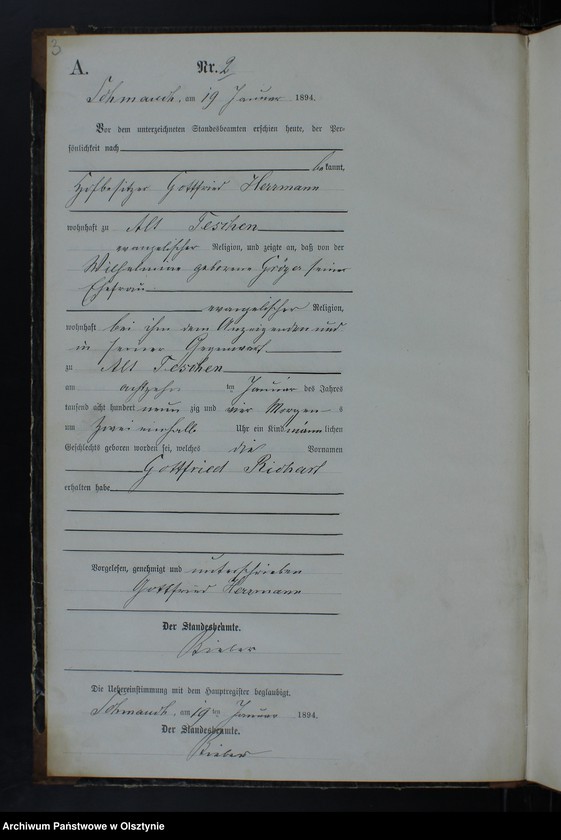 3
A. Nr. 2
Schmauch, am 19 Januar 1894.
Vor dem unterzeichneten Standesbeamten erschien heute, der Per-
sönlichkeit nach
bekannt,
Hofbesitzer Gottfried Herrmann
wohnhaft zu Alt Teschen
evangelischer Religion, und zeigte an, daß von der
Wilhelmine geborene Gröger seiner
Ehefrau
evangelischer Religion,
wohnhaft bei ihm dem Anzeigenden und
in seiner Gegenwart
zu Alt Teschen
am achtzehn ten Januar des Jahres
tausend acht hundert neun zig und vier Morgens
um zwei einhalb Uhr ein Kind männlichen
Geschlechts geboren worden sei, welches die Vornamen
Gottfried Richart
erhalten habe
Vorgelesen, genehmigt und unterschrieben
Gottfried Herrmann
Der Standesbeamte.
Rieber
Die Uebereinstimmung mit dem Hauptregister beglaubigt.
Schmauch, am 19 ten Januar 1894.
Der Standesbeamte.
Rieber
Archiwum Państwowe w Olsztynie